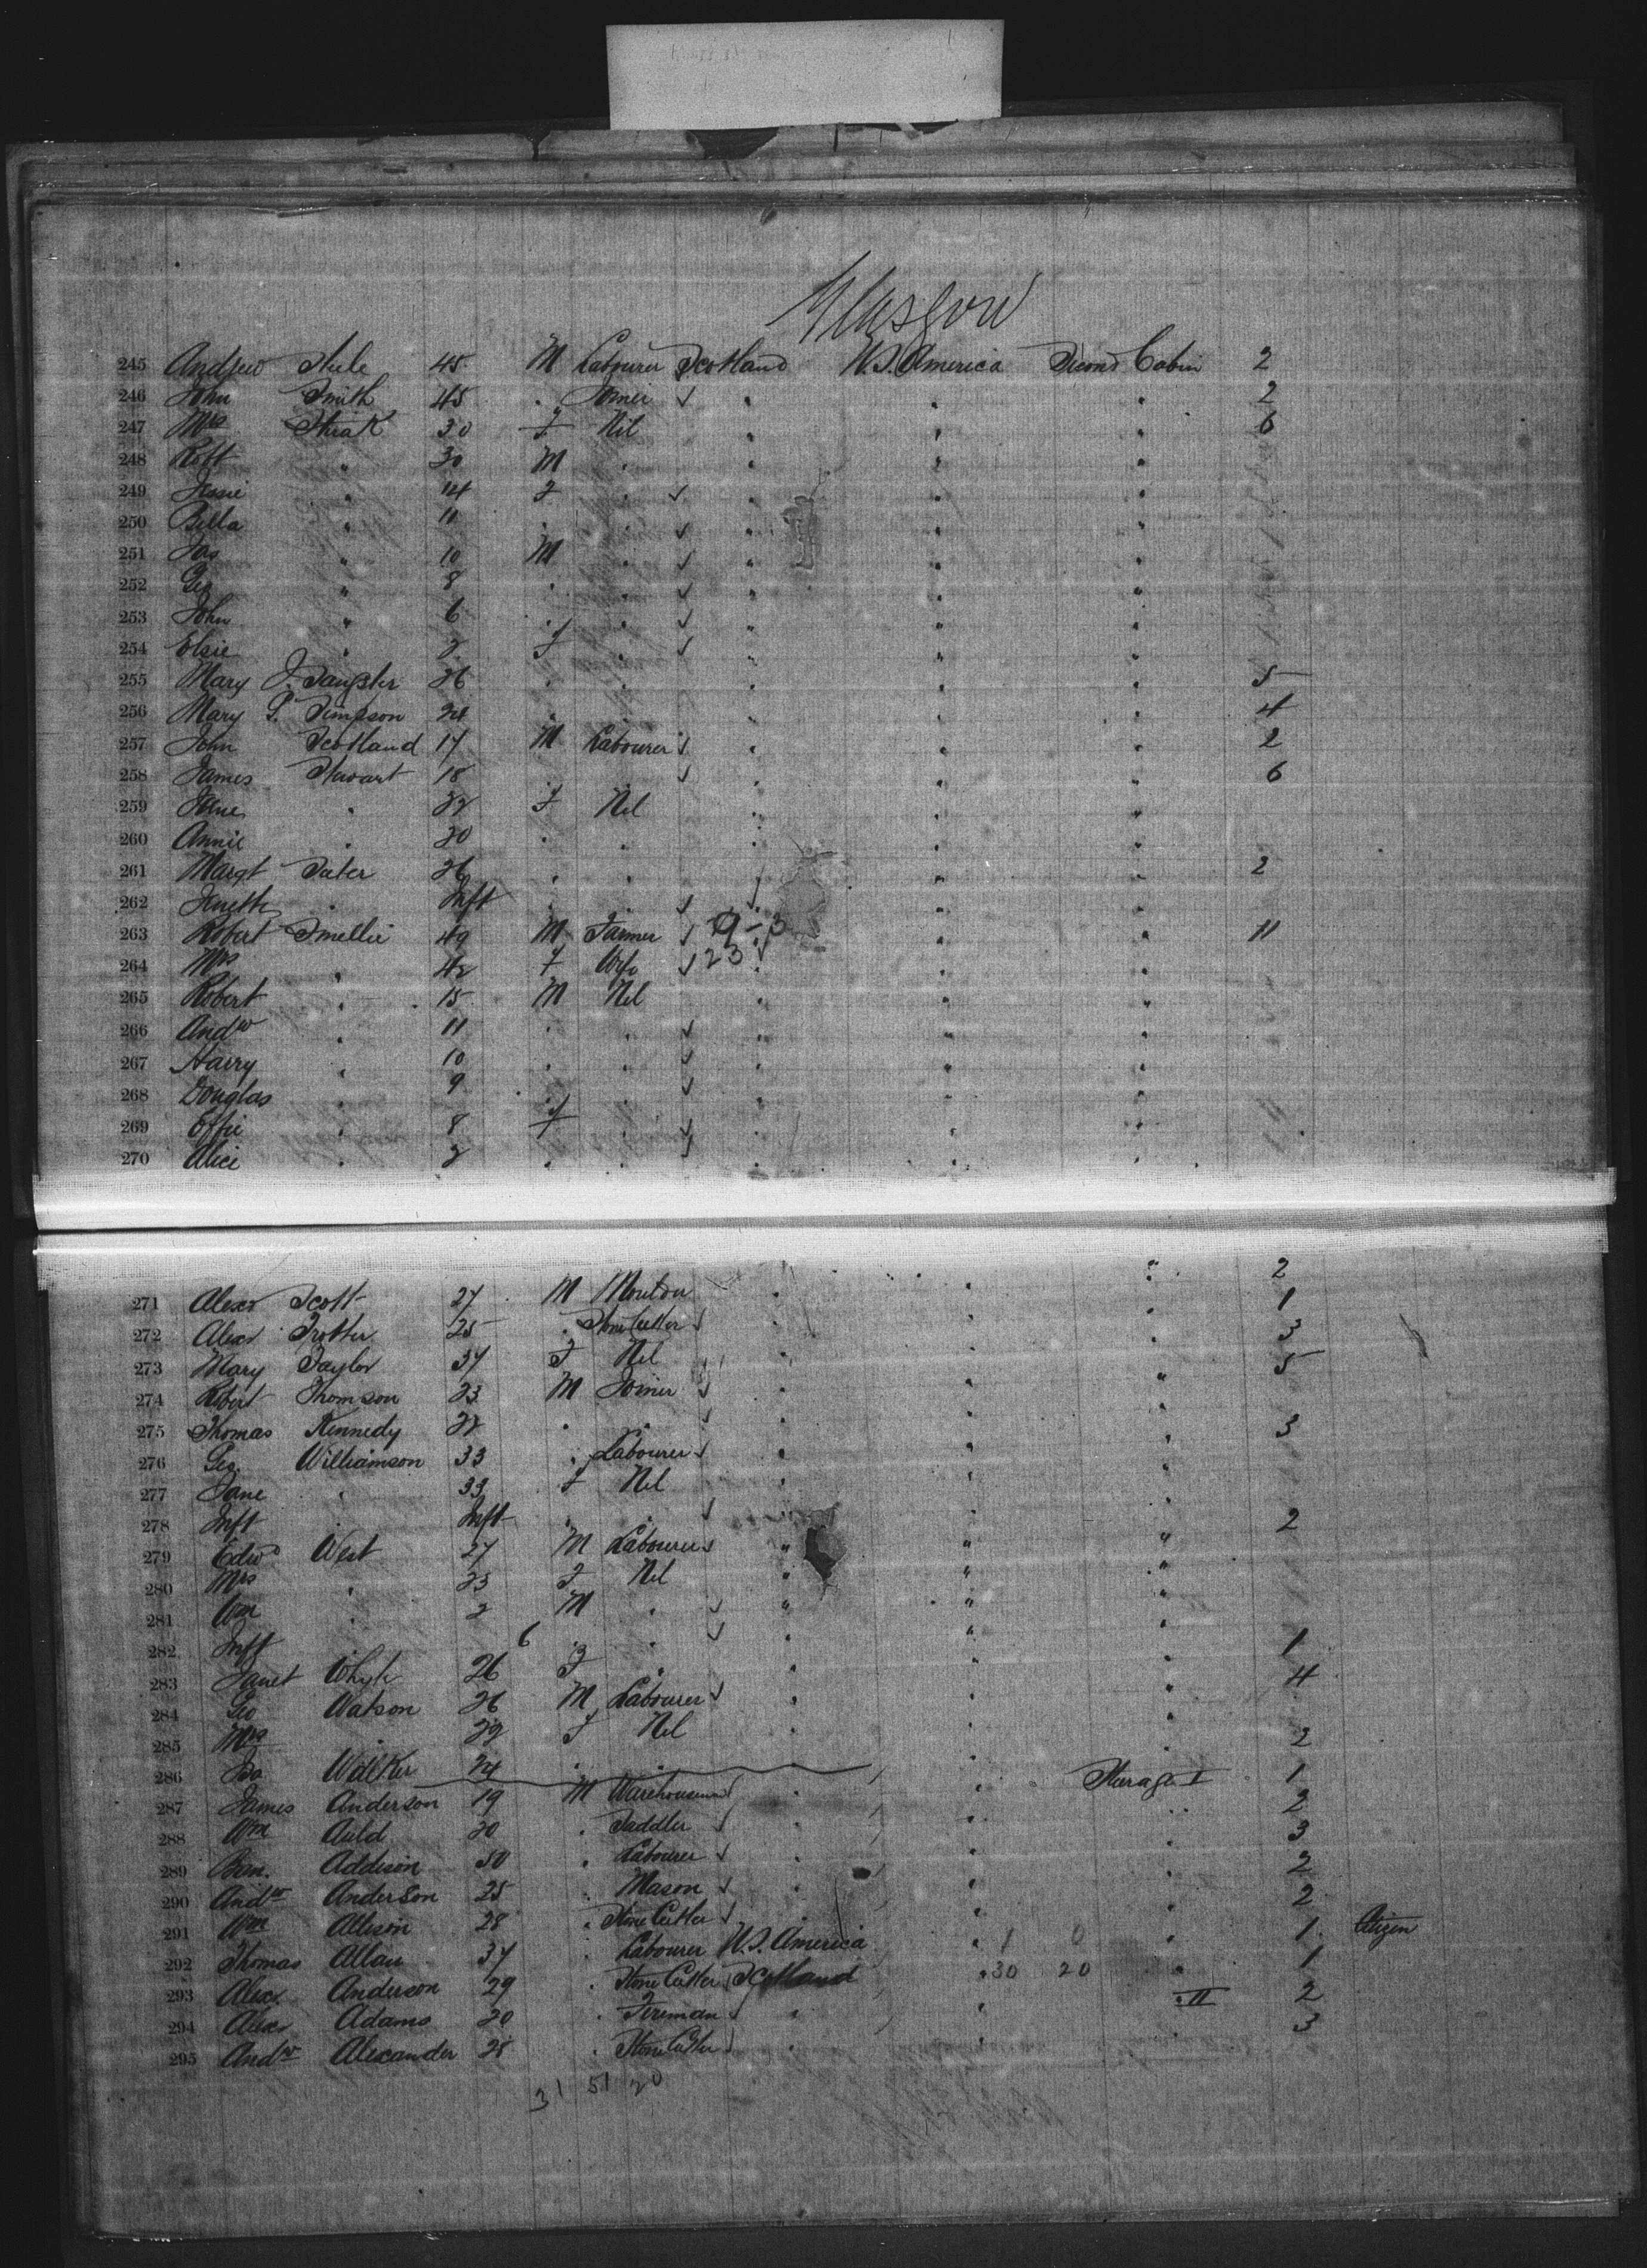 Glasgow
245 Andrew Steele 45 M Labourer Scotland U.S. America Second Cabin 2
246 John Smith 45 " Joiner " " " 2
247 Mrs 30 F Nil " " " 6
248 Robt " 30 M " " " "
249 Jessie " 14 F " " " "
250 Bella " 11 " " " " "
251 Jas " 10 M " " " "
252 Geo " 8 " " " " "
253 John " 6 " " " " "
254 Elsie " 2 F " " " "
255 Mary J. Sangster 26 " " " " " 5
256 Mary Simpson 24 " " " " " 4
257 John Scotland 17 M Labourer " " " 2
258 James Stewart 18 " " " " " 6
259 " 22 F Nil " " "
260 Annie " 20 " " " " "
261 Margt 26 " " " " " 2
262 " Inft " " " " "
263 Robert Smellie 49 M Farmer 9-3 " " 11
264 Mrs " 42 F Wife 23 " " "
265 Robert " 15 M Nil " " "
266 Andw " 11 " " " " "
267 Harry " 10 " " " " "
268 Douglas " 9 " " " " "
269 Effie " 8 F " " " "
270 Alice " 2 " " " " "
271 Alexr Scott 27 M " " " 2
272 Alexr Trotter 25 " Stone Cutter " " " 1
273 Mary Taylor 37 F Nil " " " 3
274 Robert Thomson 23 M Joiner " " " 5
275 Thomas Kennedy 22 " " " " "
276 Geo. Williamson 33 " Labourer " " " 3
277 Jane " 33 F Nil " " "
278 Inft " Inft " " " " "
279 Edwd West 27 M Labourer " " " 2
280 Mrs " 23 F Nil " " "
281 Wm " 2 M " " " "
282 Inft 6 " " " " "
283 Janet Whyte 26 F " " " " 1
284 Geo Watson 26 M Labourer " " " 4
285 Mrs " 22 F Nil " " "
286 Walker 24 " " " " " 2
287 James Anderson 19 M Warehouseman " " Steerage I 1
288 Wm Auld 20 " Saddler " " " 2
289 Addison 50 " Labourer " " " 3
290 Andw Anderson 25 " Mason " " " 2
291 Wm Allison 28 " Stone Cutter " " " 2
292 Thomas Allan 37 " Labourer U.S. America " 1 0 " 1. Citizen
293 Alex. Anderson 29 " Stone Cutter Scotland " 30 20 " 1
294 Alex Adams 20 " Fireman " " " II 2
295 Andw Alexander 28 " Stone Cutter " " " 3
31 51 20